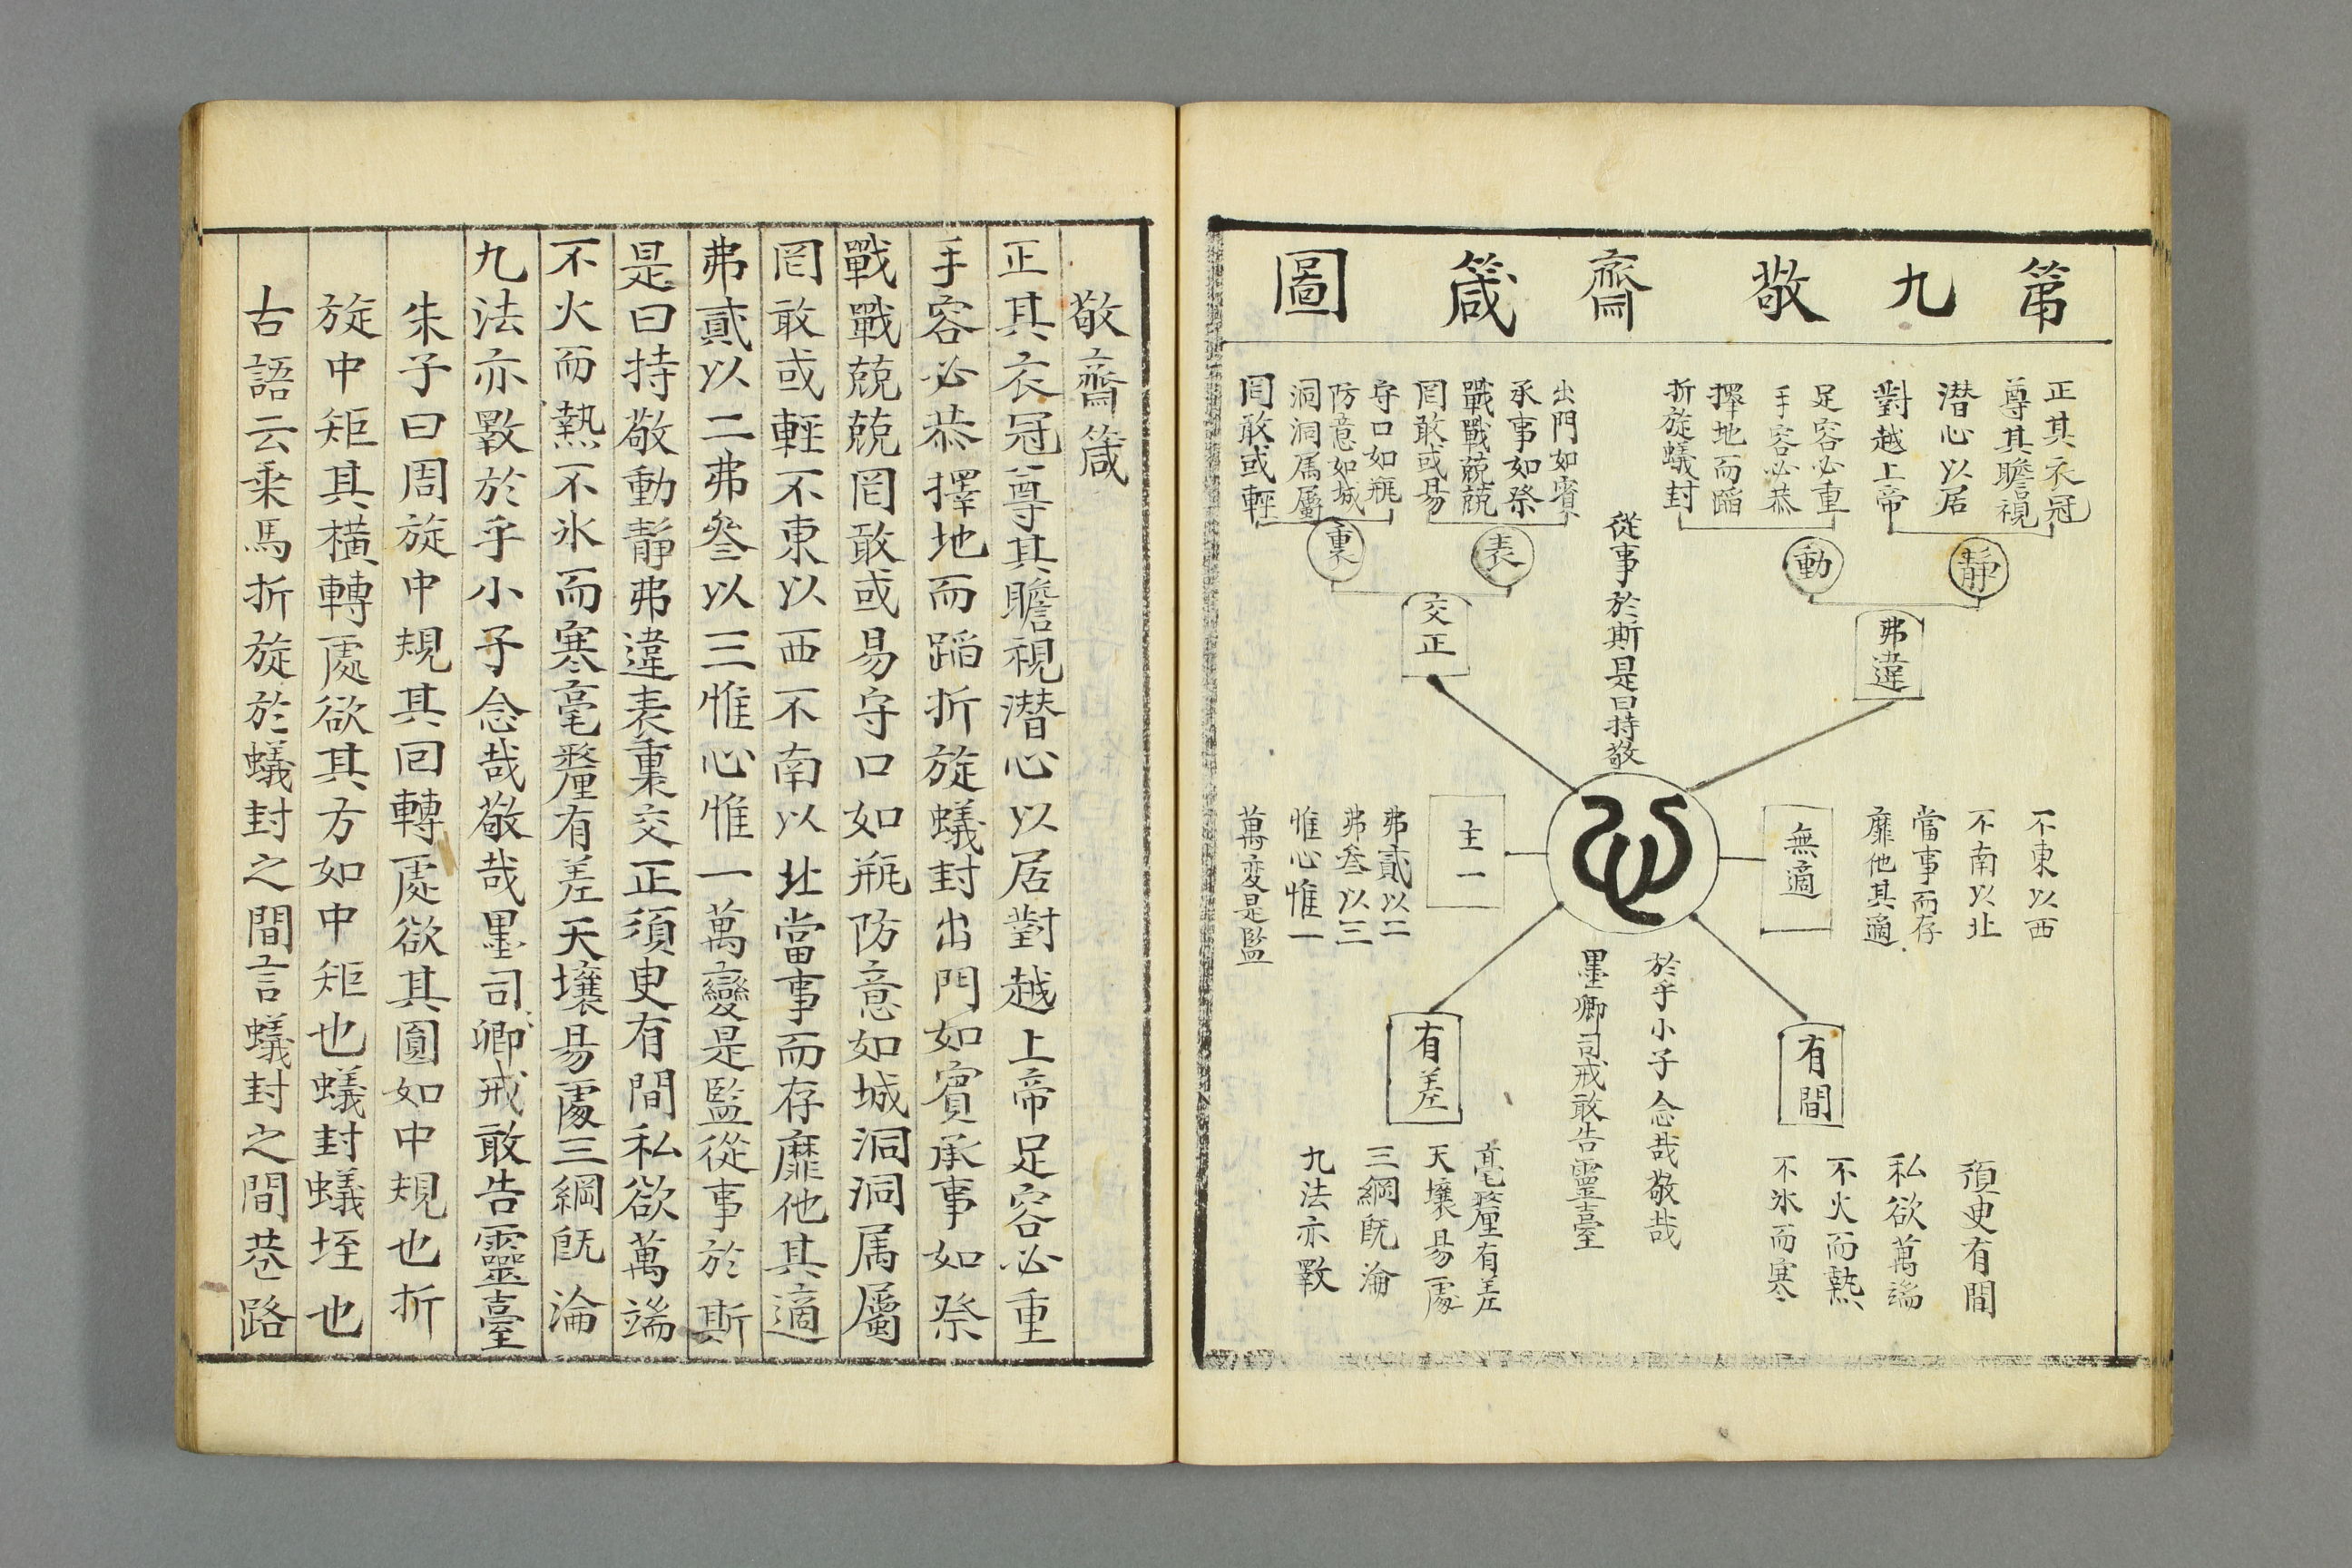 第九敬齋箴圖
正其衣冠
尊其瞻視
潜心以居
對越上帝
靜
足容必重
手容必恭
擇地而蹈
折旋蟻封
動
弗違
從事於斯是曰持敬
出門如賓
承事如祭
戰戰兢兢
罔敢或易
表
守口如瓶
防意如城
洞洞属屬
罔敢或輕
裏
交正
心
不東以西
不南以北
當事而存
靡他其適
無適
主一
弗貳以二
弗叄以三
惟心惟一
萬変是監
有間
湏臾有間
私欲萬端
不火而熱
不氷而寒
於乎小子念哉敬哉
墨卿司戒敢告靈臺
有差
毫釐有差
天壤易處
三綱旣淪
九法亦斁
敬齋箴
正其衣冠尊其瞻視潜心以居對越上帝足容必重
手容必恭擇地而蹈折旋蟻封出門如賓承事如祭
戰戰兢兢罔敢或易守口如瓶防意如城洞洞属屬
罔敢或輕不東以西不南以北當事而存靡他其適
弗貳以二弗叄以三惟心惟一萬變是監從事於斯
是曰持敬動靜弗違表裏交正須臾有間私欲萬端
不火而熱不氷而寒毫釐有差天壤易處三綱旣淪
九法亦斁於乎小子念哉敬哉墨司卿戒敢告靈臺
朱子曰周旋中規其回轉處欲其圓如中規也折
旋中矩其橫轉處欲其方如中矩也蟻封蟻垤也
古語云乗馬折旋於蟻封之間言蟻封之間巷路